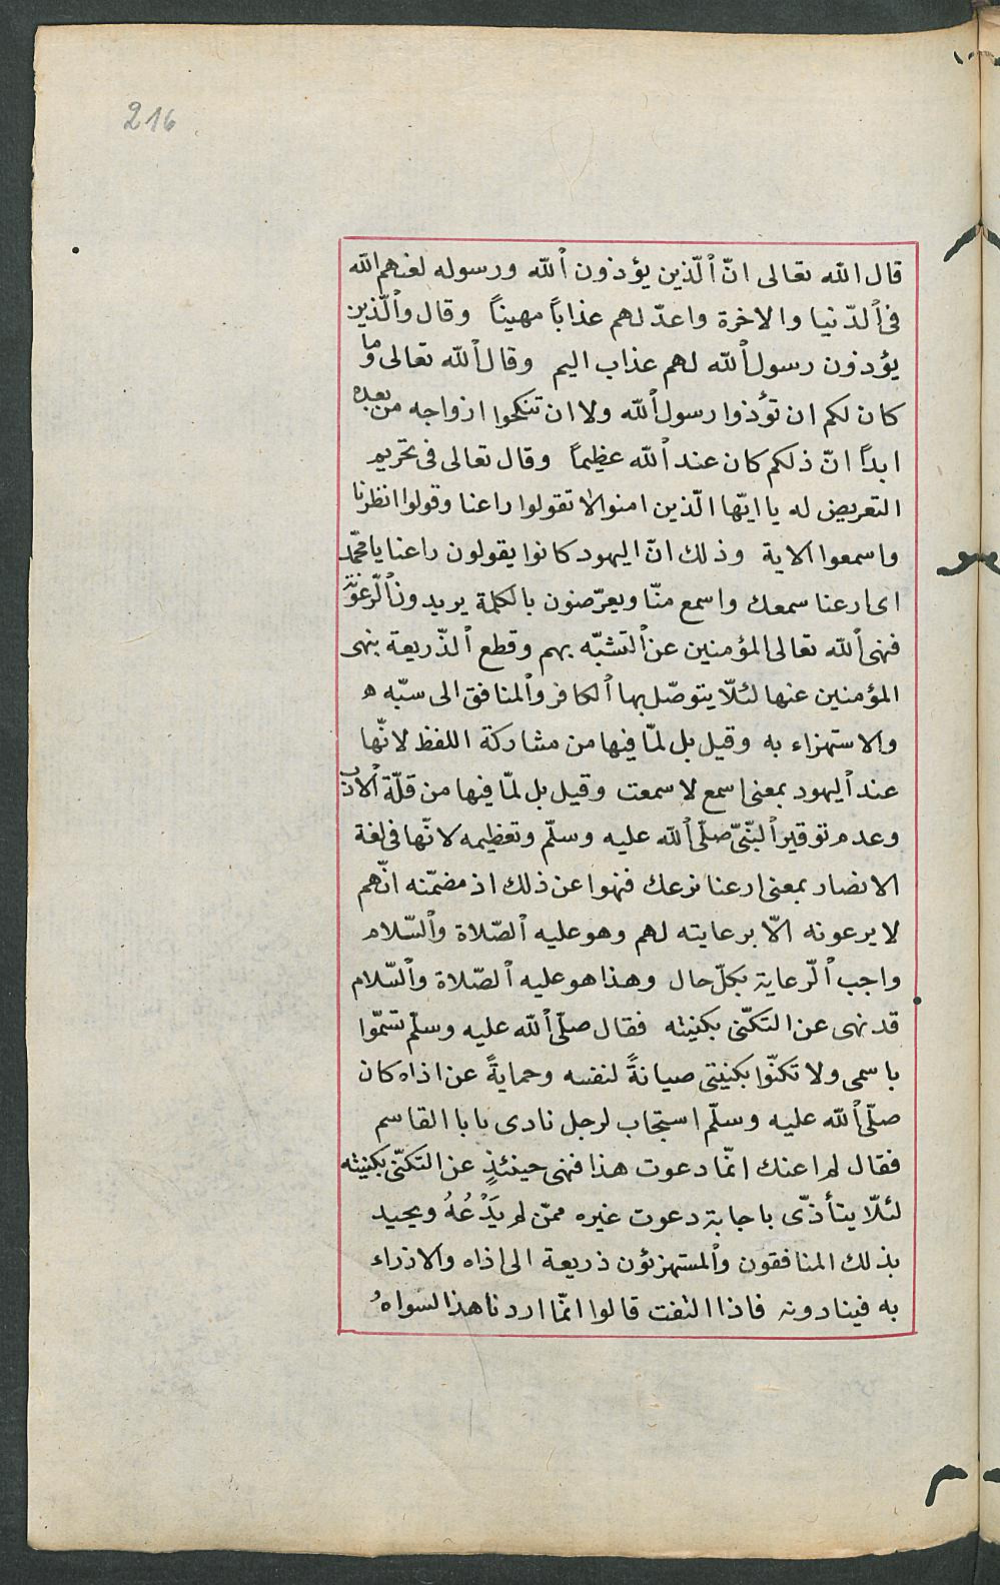 216
قال الله تعالى انّ ٱلّذين يؤذون ٱلله ورسوله لعنهم الله
فى ٱلدّنيا والاخرة واعدّ لهم عذاباً مهيناً وقال وٱلّذين
يؤذون رسول ٱلله لهم عذاب اليم وقال ٱلله تعالى وما
كان لكم ان تؤذوا رسول ٱلله ولا ان تنكحوا ازواجه من بعده
ابداً انّ ذلكم كان عند ٱلله عظيماً وقال تعالى فى تحريم
التعريض له يا ايّها الّذين امنوا لا تقولوا راعنا وقولوا انظرنا
واسمعوا الاية وذلك انّ اليهود كانوا يقولون راعنا يا محمّد
اى ارعنا سمعك واسمع منّا ويعرّضون بالكلمة يريدون ٱلرّعونة
فنهى ٱلله تعالى المؤمنين عن ٱلتشبّه بهم وقطع ٱلذّريعة بنهى
المؤمنين عنها لئلّا يتوصّل بها ٱلكافر وٱلمنافق الى سبّه ه
والاستهزاء به وقيل بل لمّا فيها من مشاركة اللفظ لانّها
عند ٱليهود بمعنى اسمع لا سمعت وقيل بل لمّا فيها من قلّة ٱلادب
وعدم توقير ٱلنّبىّ صلّى ٱلله عليه وسلّم وتعظيمه لانّها فى لغة
الانصار بمعنى ارعنا نرعك فنهوا عن ذلك اذ مضمّنه انّهم
لا يرعونه الّا برعايته لهم وهو عليه ٱلصّلاة وٱلسّلام
واجب ٱلرّعاية بكلّ حال وهذا هو عليه ٱلصّلاة وٱلسّلام
قد نهى عن التكنّى بكنيته فقال صلّى ٱلله عليه وسلّم تسمّوا
باسمى ولا تكنّوا بكنيتى صيانةً لنفسه وحمايةً عن اذاه كان
صلّى ٱلله عليه وسلّم استجاب لرجل نادى يابا القاسم
فقال لم اعنك انّما دعوت هذا فنهى حينئذٍ عن التكنّى بكنيته
لئلّا يتأذّى باجابة دعوت غيره ممّن لم يَدْعُهُ ويجيد
بذلك المنافقون وٱلمستهزئون ذريعة الى اذاه والازراء
به فينادونه فاذا التفت قالوا انّما اردنا هذا لسواهُ